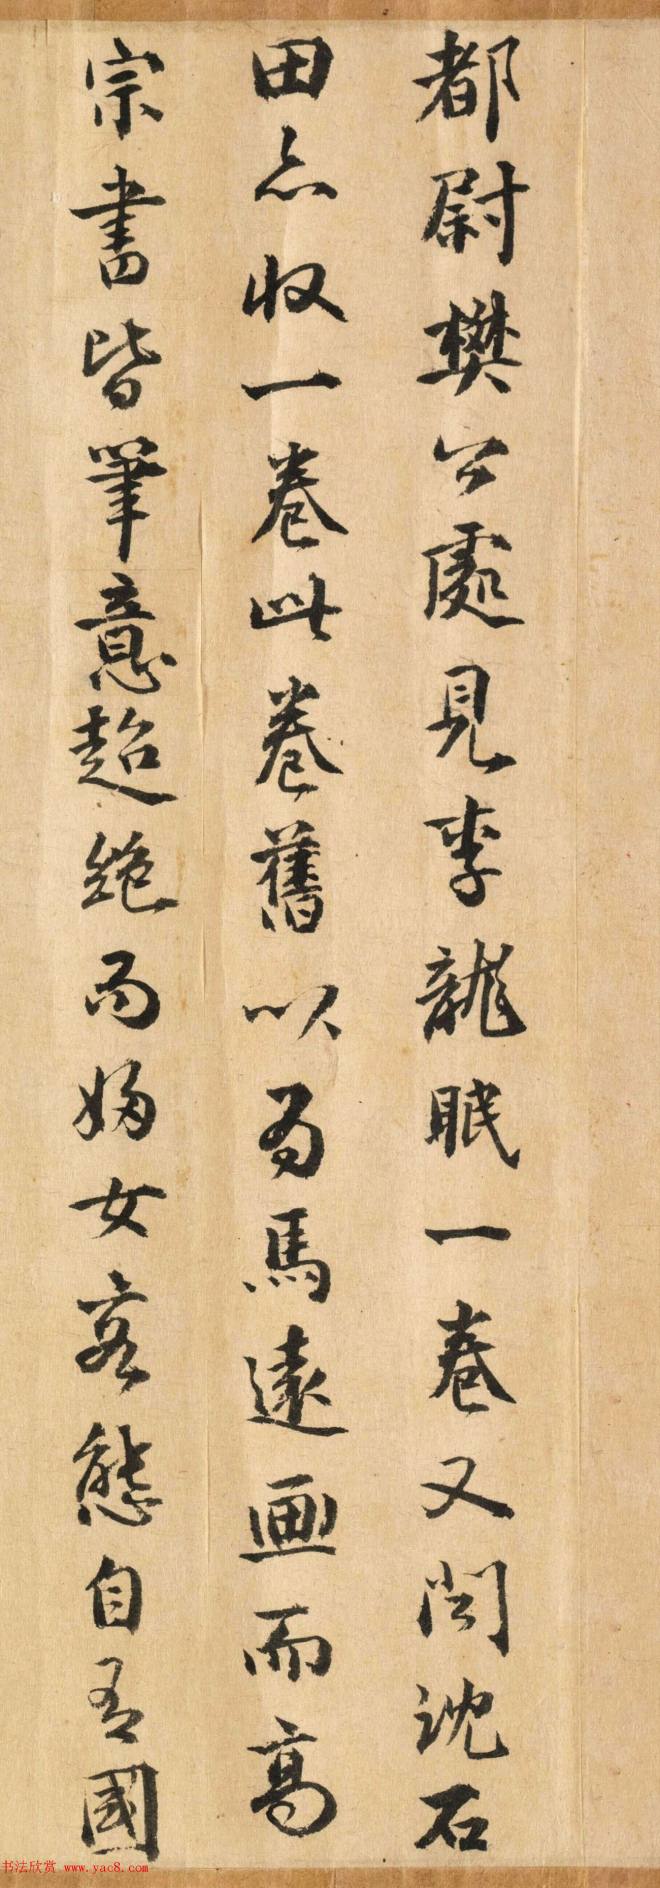 都尉樊公處見李龍眠一卷又聞沈石
田亦收一卷此卷舊以為馬遠画而高
宗書皆筆意超絶而婦女容態自有國
书法欣赏 www.yac8.com